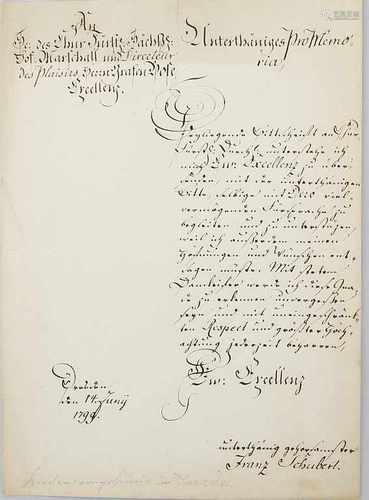 An
Se. des Chur-Fürstl. Sächsß.
Hof-Marschall und Directeur
des Plaisirs, Herrn Grafen Bose
Excellenz.
Unterthäniges Pro Memo-
ria,
Beyliegende Bittschrift an Chur
Fürstl. Durchl. unterstehe ich
mich Ew. Excellenz zu über-
senden, mit der unterthänigen
Bitte, selbige mit Dero viel-
vermögenden Fürsprache zu
begleiten und zu unterstützen,
weil ich außerdem meinen
Hoffnungen und Wünschen ent-
sagen müßte. Mit stetem
Dankeifer werde ich diese Gna-
de zu erkennen unvergessen
seyn und mit uneingeschränk-
ten Respect und größter Hoch-
achtung jederzeit beharren,
Ew. Excellenz
Dresden
den 14. Junÿ
1799.
unterthänig gehorsamster
Franz Schubert.